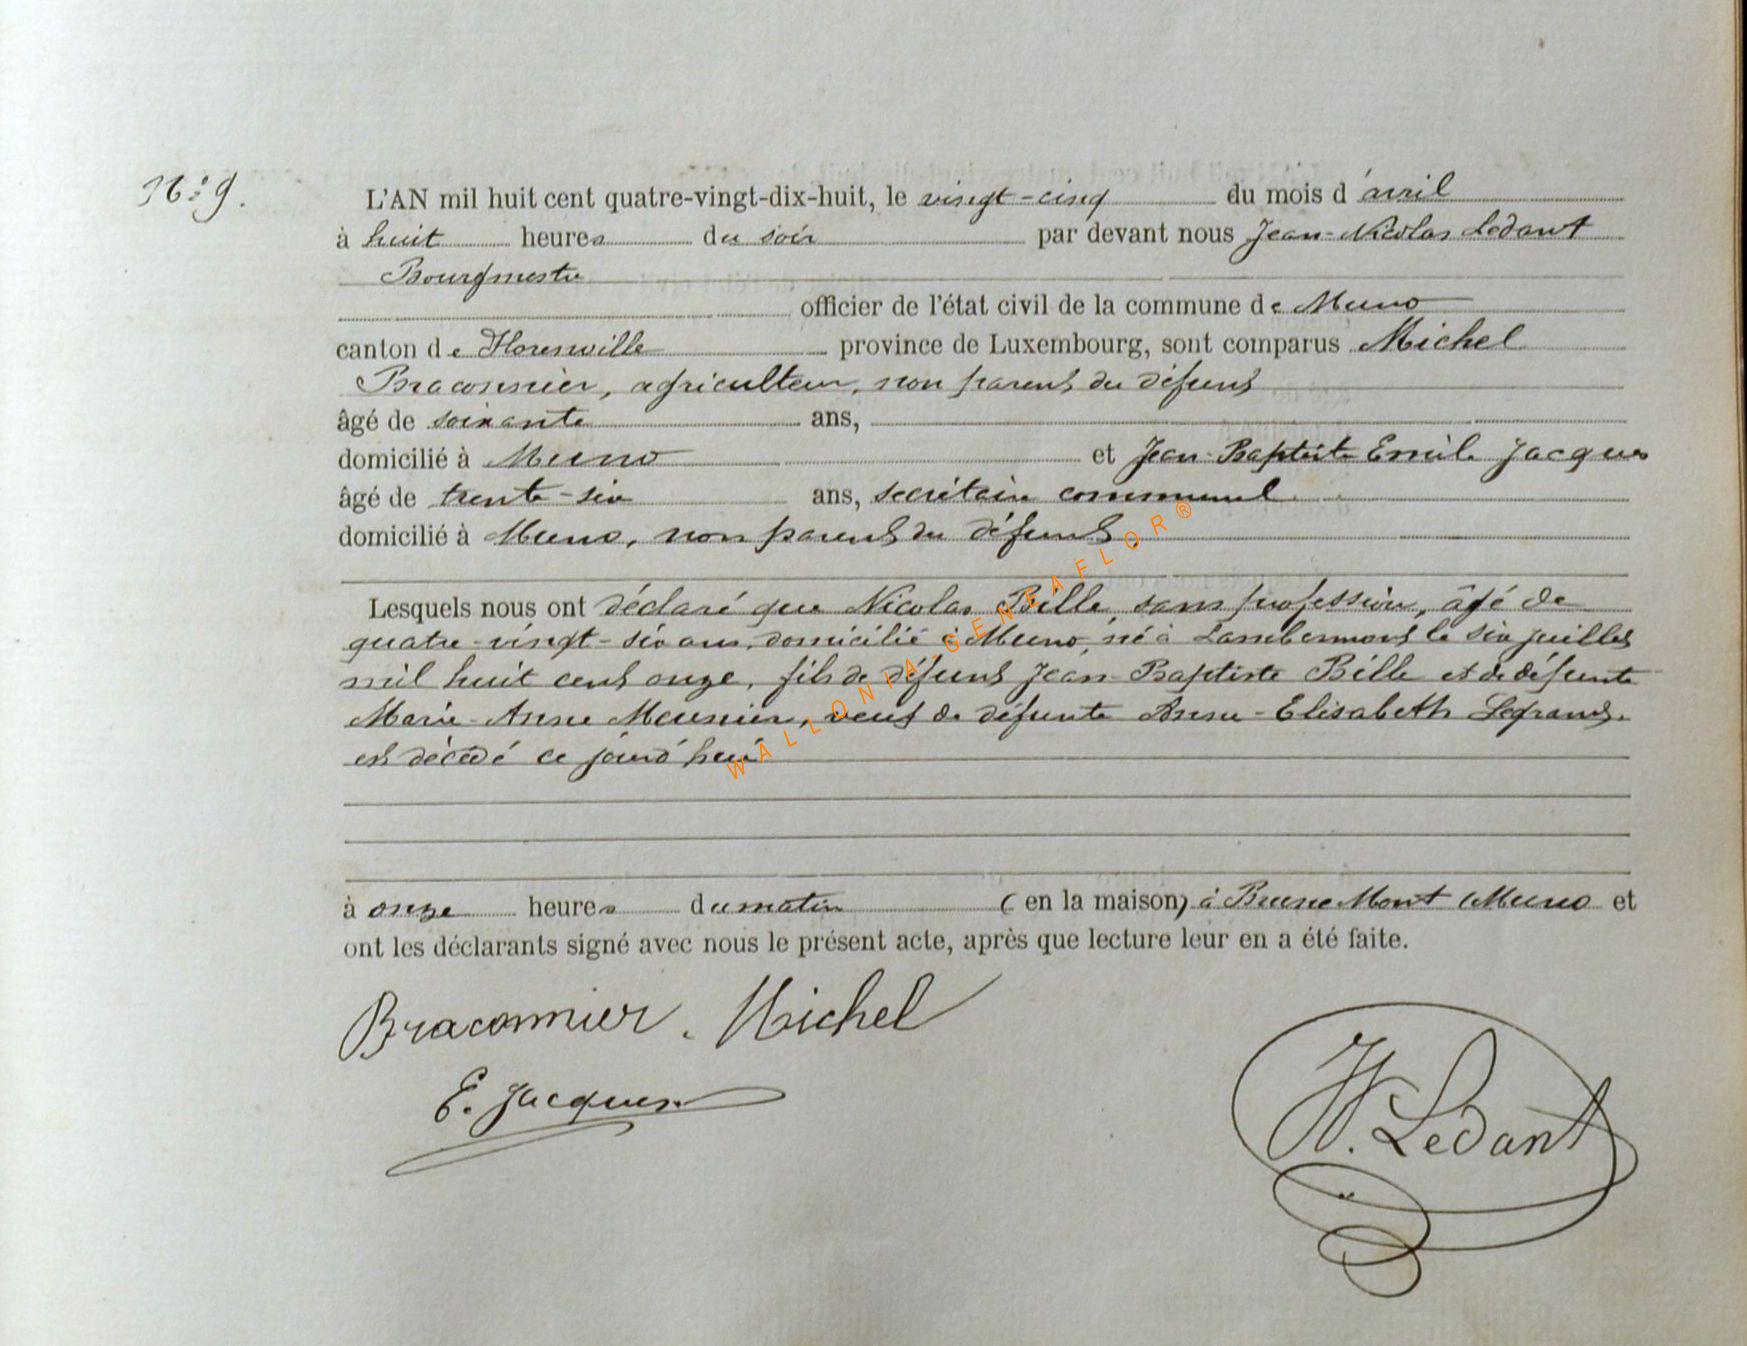 N° 9.
L'AN mil huit cent quatre-vingt-dix-huit, le vingt-cinq du mois d'avril
à huit heures du soir par devant nous Jean-Nicolas Ledant
Bourgmestre
officier de l'état civil de la commune de Muno
canton de Florenville province de Luxembourg, sont comparus Michel
Braconnier, agriculteur, non parent du défunt
âgé de soixante ans,
domicilié à Muno et Jean-Baptiste Emile Jacques
âgé de trente-six ans, secrétaire communal
domicilié à Muno, non parent du défunt.
Lesquels nous ont déclaré que Nicolas Bille, sans profession, âgé de
quatre-vingt-six ans, domicilié à Muno, né à Lambermont le six juillet
mil huit cent onze, fils de défunt Jean-Baptiste Bille et de défunte
Marie-Anne Meunier, veuf de défunte Anne-Elisabeth Legrand.
est décédé ce jourd'hui
à onze heures du matin (en la maison) à Brune Mont Muno et
ont les déclarants signé avec nous le présent acte, après que lecture leur en a été faite.
Braconnier. Michel
E. Jacques
N. Ledant
WALLONIA-GENEAFLOR®